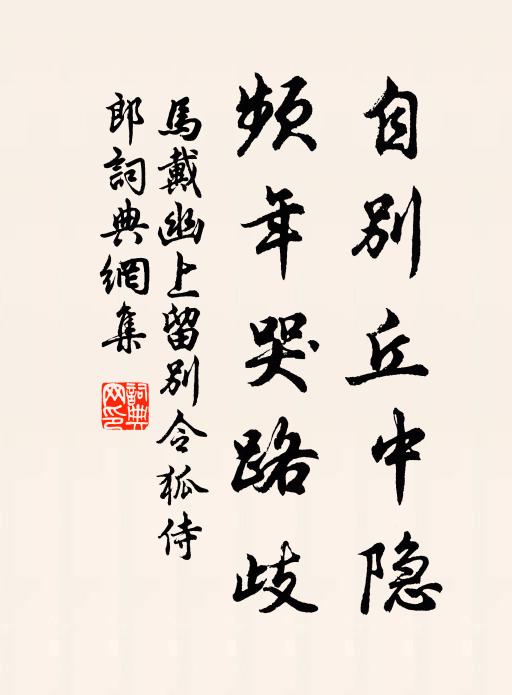 自別丘中隐
频年哭路歧
馬戴幽上留別令狐侍
郎詞典網集
詞典网印